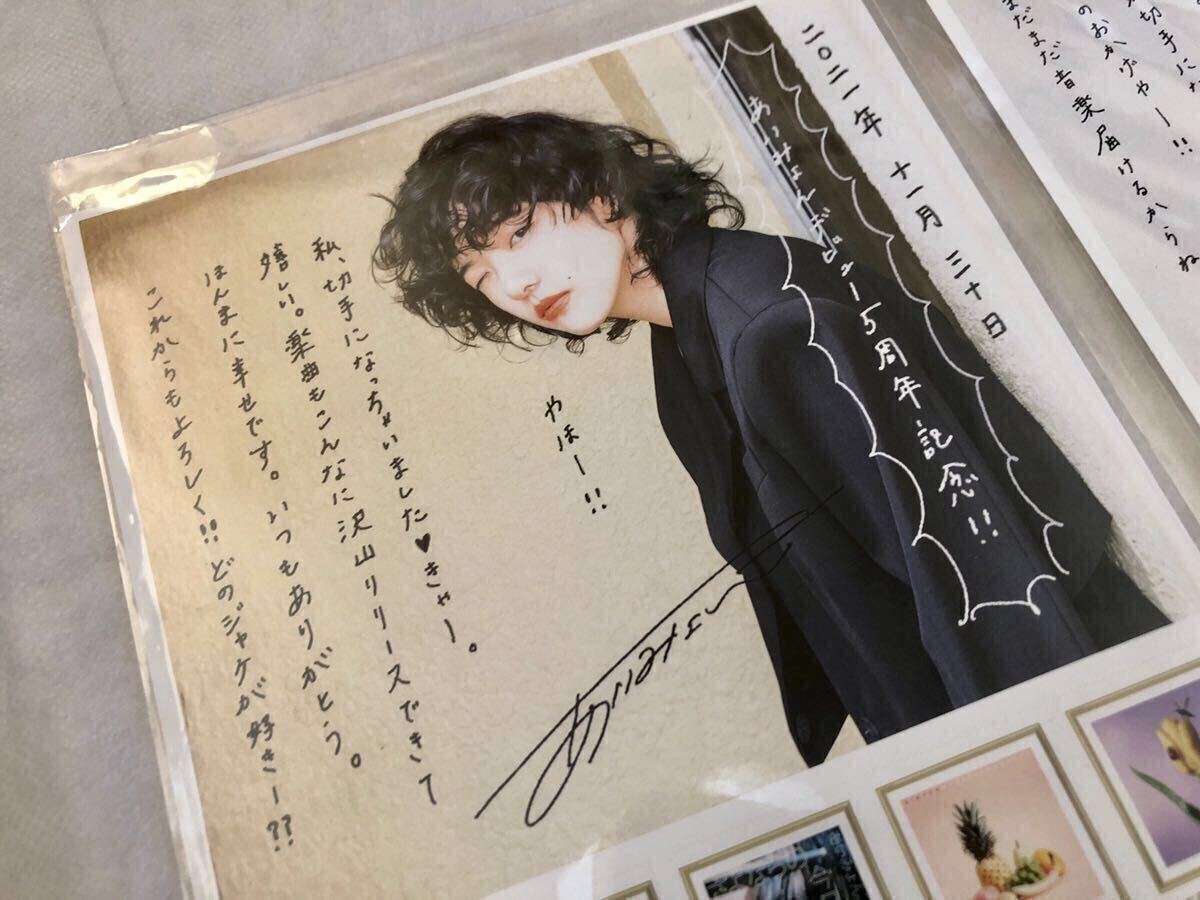 二〇二一年 十一月 三十日
あいみょんデビュー5周年記念!!
やほー!!
私、切手になっちゃいました♥きゃー。
嬉しい。楽曲もこんなに沢山リリースできて
ほんまに幸せです。いつもありがとう。
これからもよろしく!! どのジャケが好きー??
あいみょん
切手にな
のおかげやー!!
まだまだ音楽届けるからね